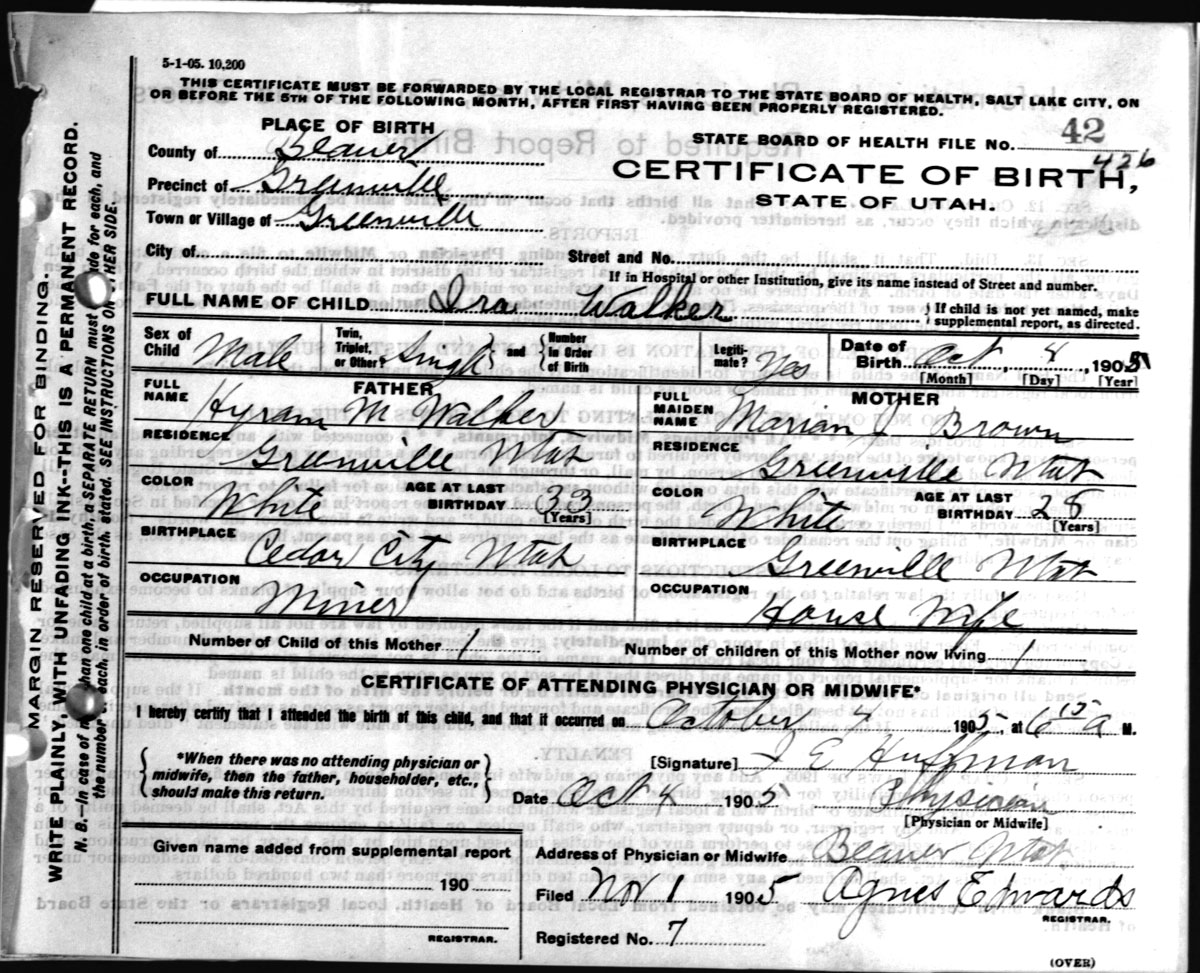 5-1-05. 10,200
THIS CERTIFICATE MUST BE FORWARDED BY THE LOCAL REGISTRAR TO THE STATE BOARD OF HEALTH, SALT LAKE CITY, ON
OR BEFORE THE 5TH OF THE FOLLOWING MONTH, AFTER FIRST HAVING BEEN PROPERLY REGISTERED.
PLACE OF BIRTH
County of Beaver
Precinct of Greenville
Town or Village of Greenville
STATE BOARD OF HEALTH FILE NO. 42
426
CERTIFICATE OF BIRTH,
STATE OF UTAH.
City of Street and No.
If in Hospital or other Institution, give its name instead of Street and number.
FULL NAME OF CHILD Ira Walker
If child is not yet named, make
supplemental report, as directed.
Sex of
Child Male
Twin,
Triplet,
or Other? Singl and
Number
In Order
of Birth
Legiti-
mate? Yes
Date of
Birth Oct 4 1905
[Month] [Day] [Year]
FATHER
FULL
NAME Hyram M. Walker
RESIDENCE
Greenville Utah
COLOR
White
AGE AT LAST
BIRTHDAY 33
[Years]
BIRTHPLACE
Cedar City Utah
OCCUPATION
Miner
MOTHER
FULL
MAIDEN
NAME Marian J Brown
RESIDENCE
Greenville Utah
COLOR
White
AGE AT LAST
BIRTHDAY 28
[Years]
BIRTHPLACE
Greenville Utah
OCCUPATION
House Wife
Number of Child of this Mother 1 Number of children of this Mother now living 1
CERTIFICATE OF ATTENDING PHYSICIAN OR MIDWIFE*
I hereby certify that I attended the birth of this child, and that it occurred on October 4 1905, at 6 15 a M.
*When there was no attending physician or
midwife, then the father, householder, etc.,
should make this return.
[Signature] J E Huffman
Date Oct 4 1905 Physician
[Physician or Midwife]
Given name added from supplemental report
190
REGISTRAR.
Address of Physician or Midwife Beaver Utah
Filed Nov 1 1905 Agnes Edwards
REGISTRAR.
Registered No. 7
(OVER)
MARGIN RESERVED FOR BINDING.
WRITE PLAINLY, WITH UNFADING INK--THIS IS A PERMANENT RECORD.
N. B.--In case of than one child at a birth, a SEPARATE RETURN must de for each, and
the number each, in order of birth, stated. SEE INSTRUCTIONS ON HER SIDE.